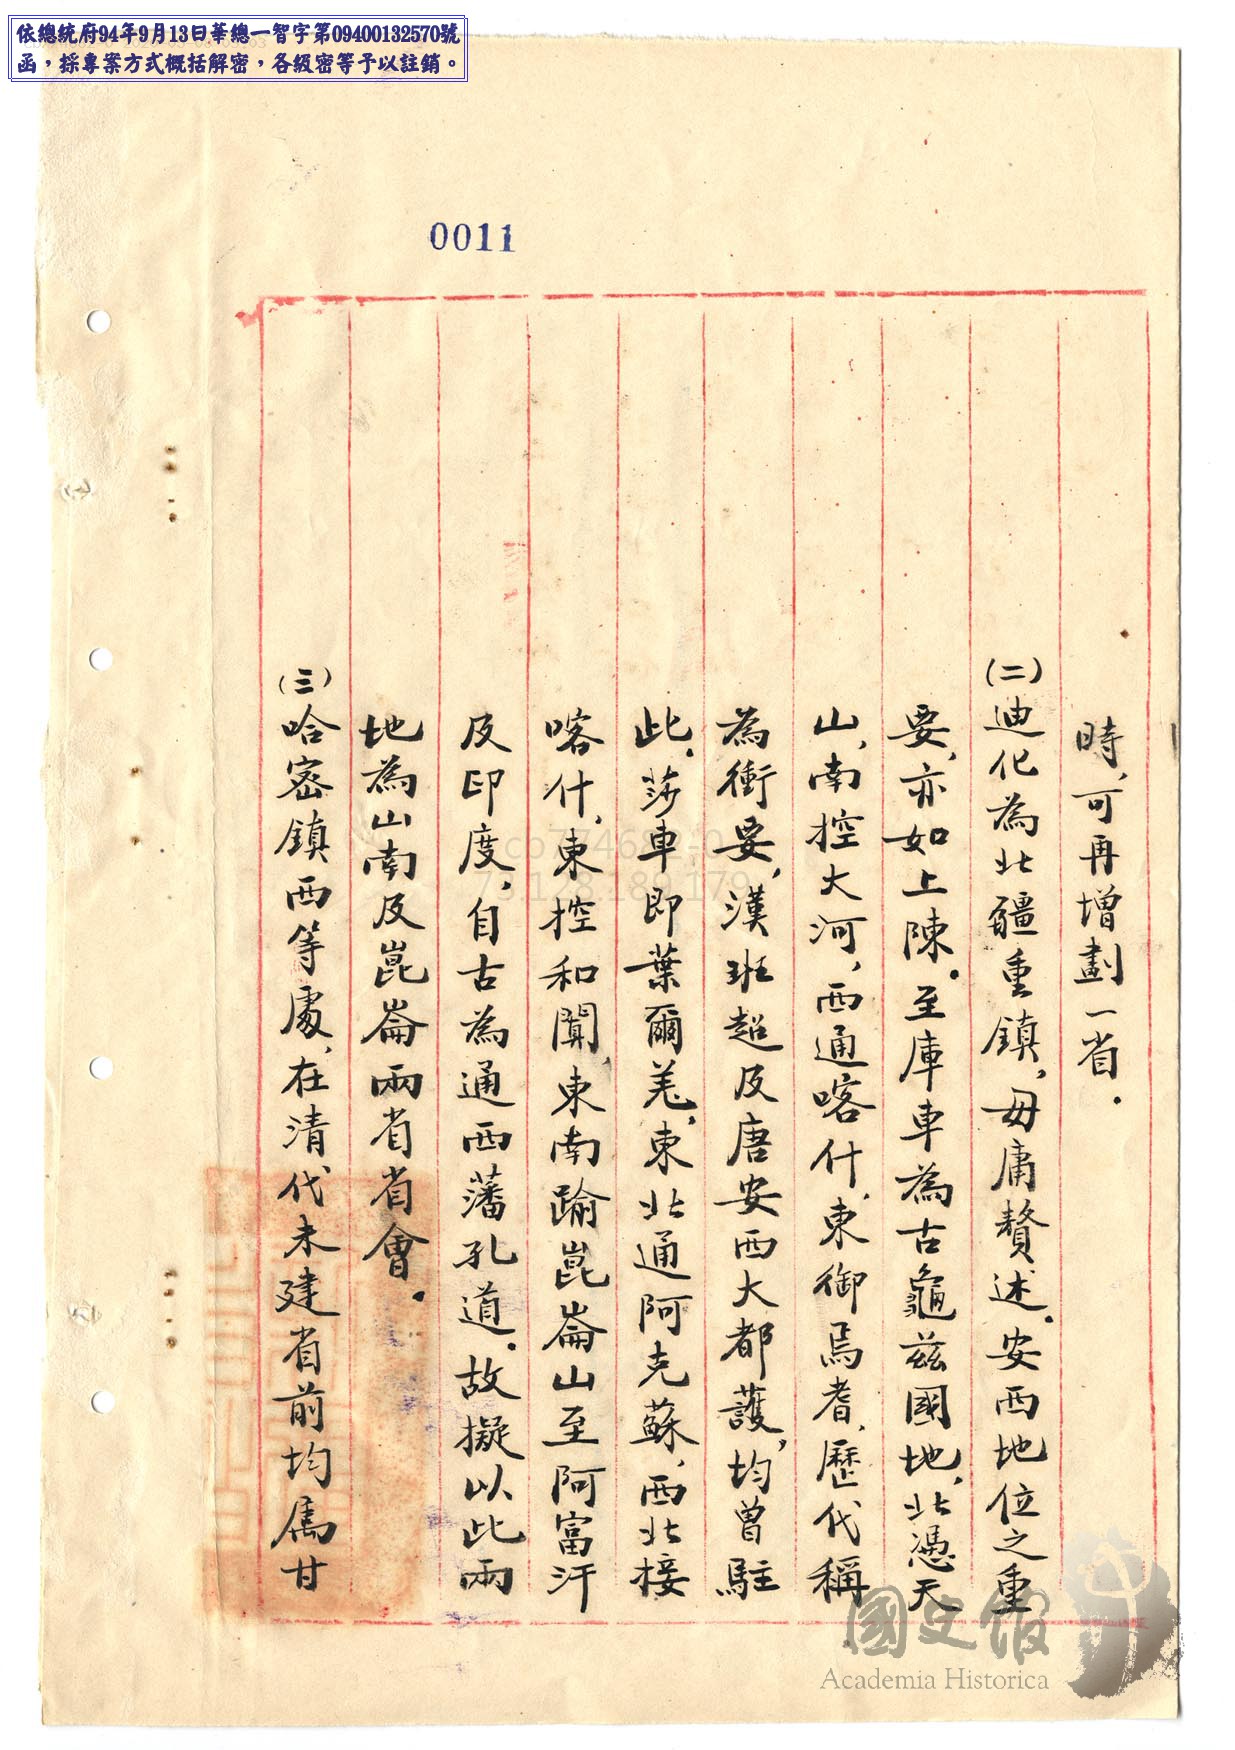 依總統府94年9月13日華總一智字第09400132570號
函，採專案方式概括解密，各級密等予以註銷。
0011
時，可再增劃一省．
(二)迪化為北疆重鎮，毋庸贅述．安西地位之重
要，亦如上陳．至庫車為古龜兹國地，北憑天
山，南控大河，西通喀什，東御焉耆，歷代稱
為衝要，漢班超及唐安西大都護，均曾駐
此．莎車即葉爾羌，東北通阿克蘇，西北接
喀什，東控和闐，東南踰崑崙山至阿富汗
及印度，自古為通西藩孔道．故擬以此兩
地為山南及崑崙兩省省會．
(三)哈密鎮西等處，在清代未建省前均属甘
國史館
Academia Historica